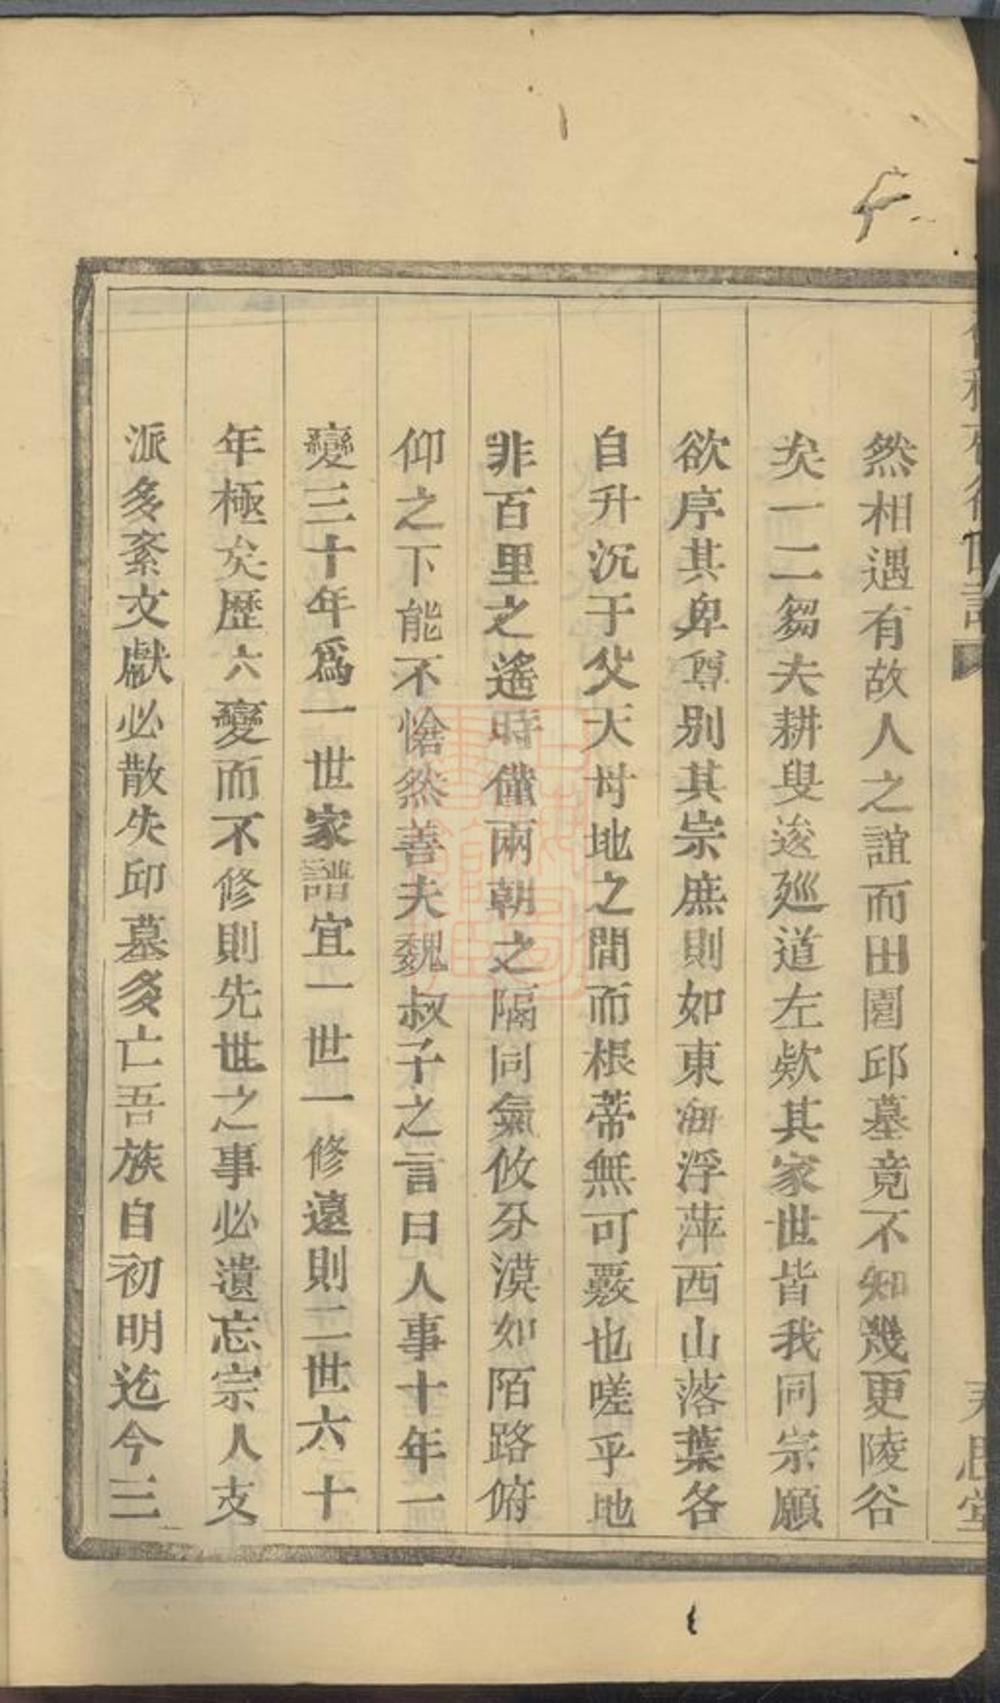 然相遇有故人之誼而田園邱墓竟不知幾更陵谷
矣一二芻夫耕叟逡廵道左欵其家世皆我同宗願
欲序其卑尊別其宗庶則如東海浮萍西山落葉各
自升沉于父天母地之間而根蒂無可覈也嗟乎地
非百里之遙時僅兩朝之隔同氣攸分漠如陌路俯
仰之下能不愴然善夫魏叔子之言曰人事十年一
變三十年爲一世家譜宜一世一修遠則二世六十
年極矣歷六變而不修則先世之事必遺忘宗人支
派多紊文獻必散失邱墓多亡吾族自初明迄今三